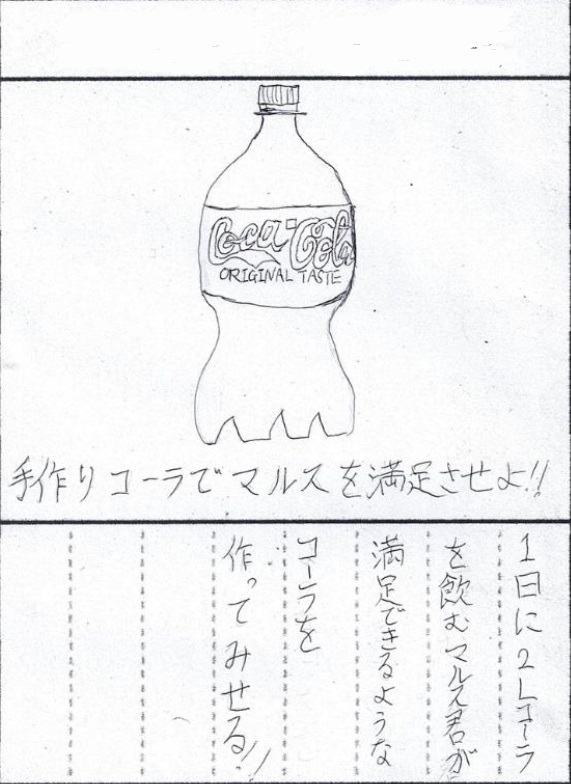 Coca-Cola
ORIGINAL TASTE
手作りコーラでマルスを満足させよ!!
1日に2Lコーラ
を飲むマルス君が
満足できるような
コーラを
作ってみせる!!